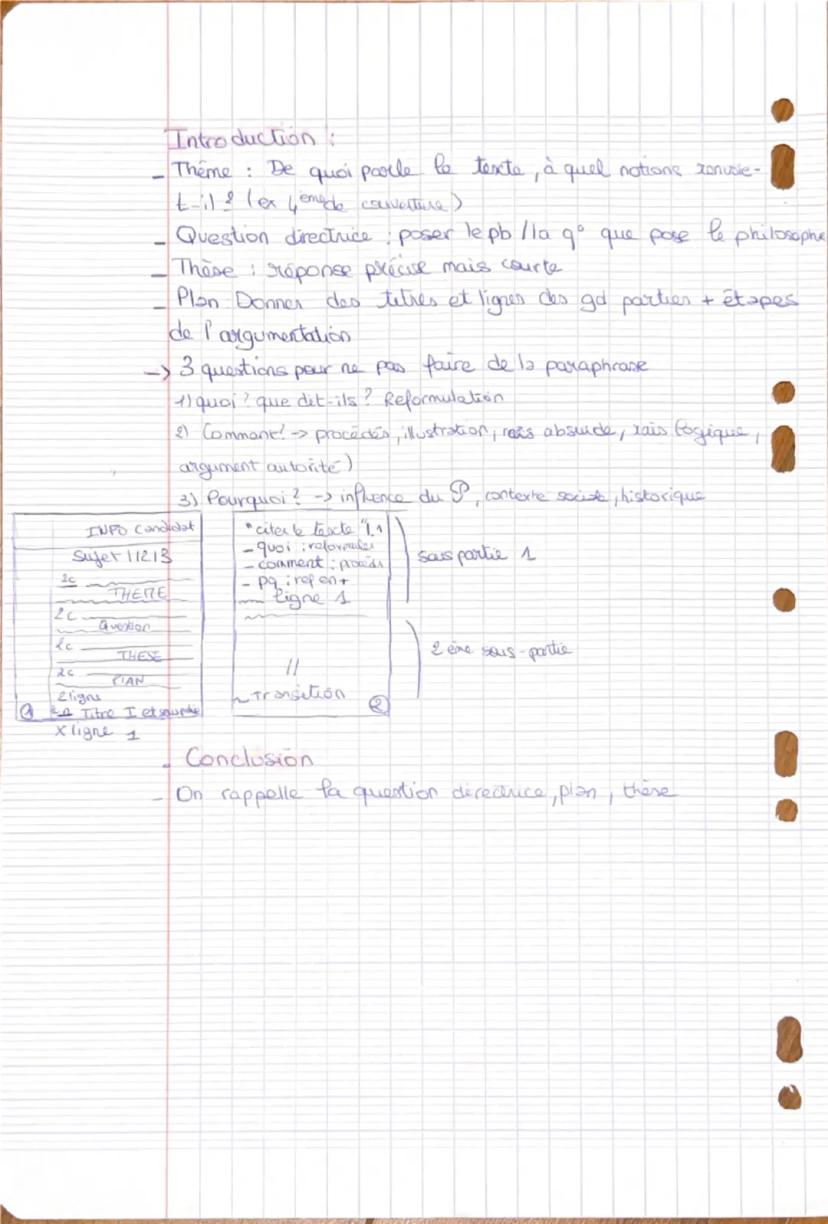 Introduction :
- Thème : De quoi parle le texte, à quel notions renvoie-
t-il ? (ex 4ème de couverture)
- Question directrice : poser le pb / la q° que pose le philosophe
- Thèse : réponse précise mais courte
- Plan : Donner des titres et lignes des gd parties + étapes
de l'argumentation
-> 3 questions pour ne pas faire de la paraphrase
1) quoi ? que dit-ils ? Reformulation
2) Comment ? -> procédés, illustration, rais absurde, rais logique,
argument autorité)
3) Pourquoi ? -> influence du P, contexte sociale, historique
INFO Candidat
Sujet 1 / 2 / 3
2c
THEME
2c
Question
2c
THESE
2c
PLAN
2 ligne
Titre I et
x ligne 1
1
"citer le texte" l.1
- quoi : reformuler
- comment : procédé
- pq :
ligne 1
//
~ Transition
2
sous partie 1
2ème sous-partie
- Conclusion
- On rappelle la question directrice, plan, thèse